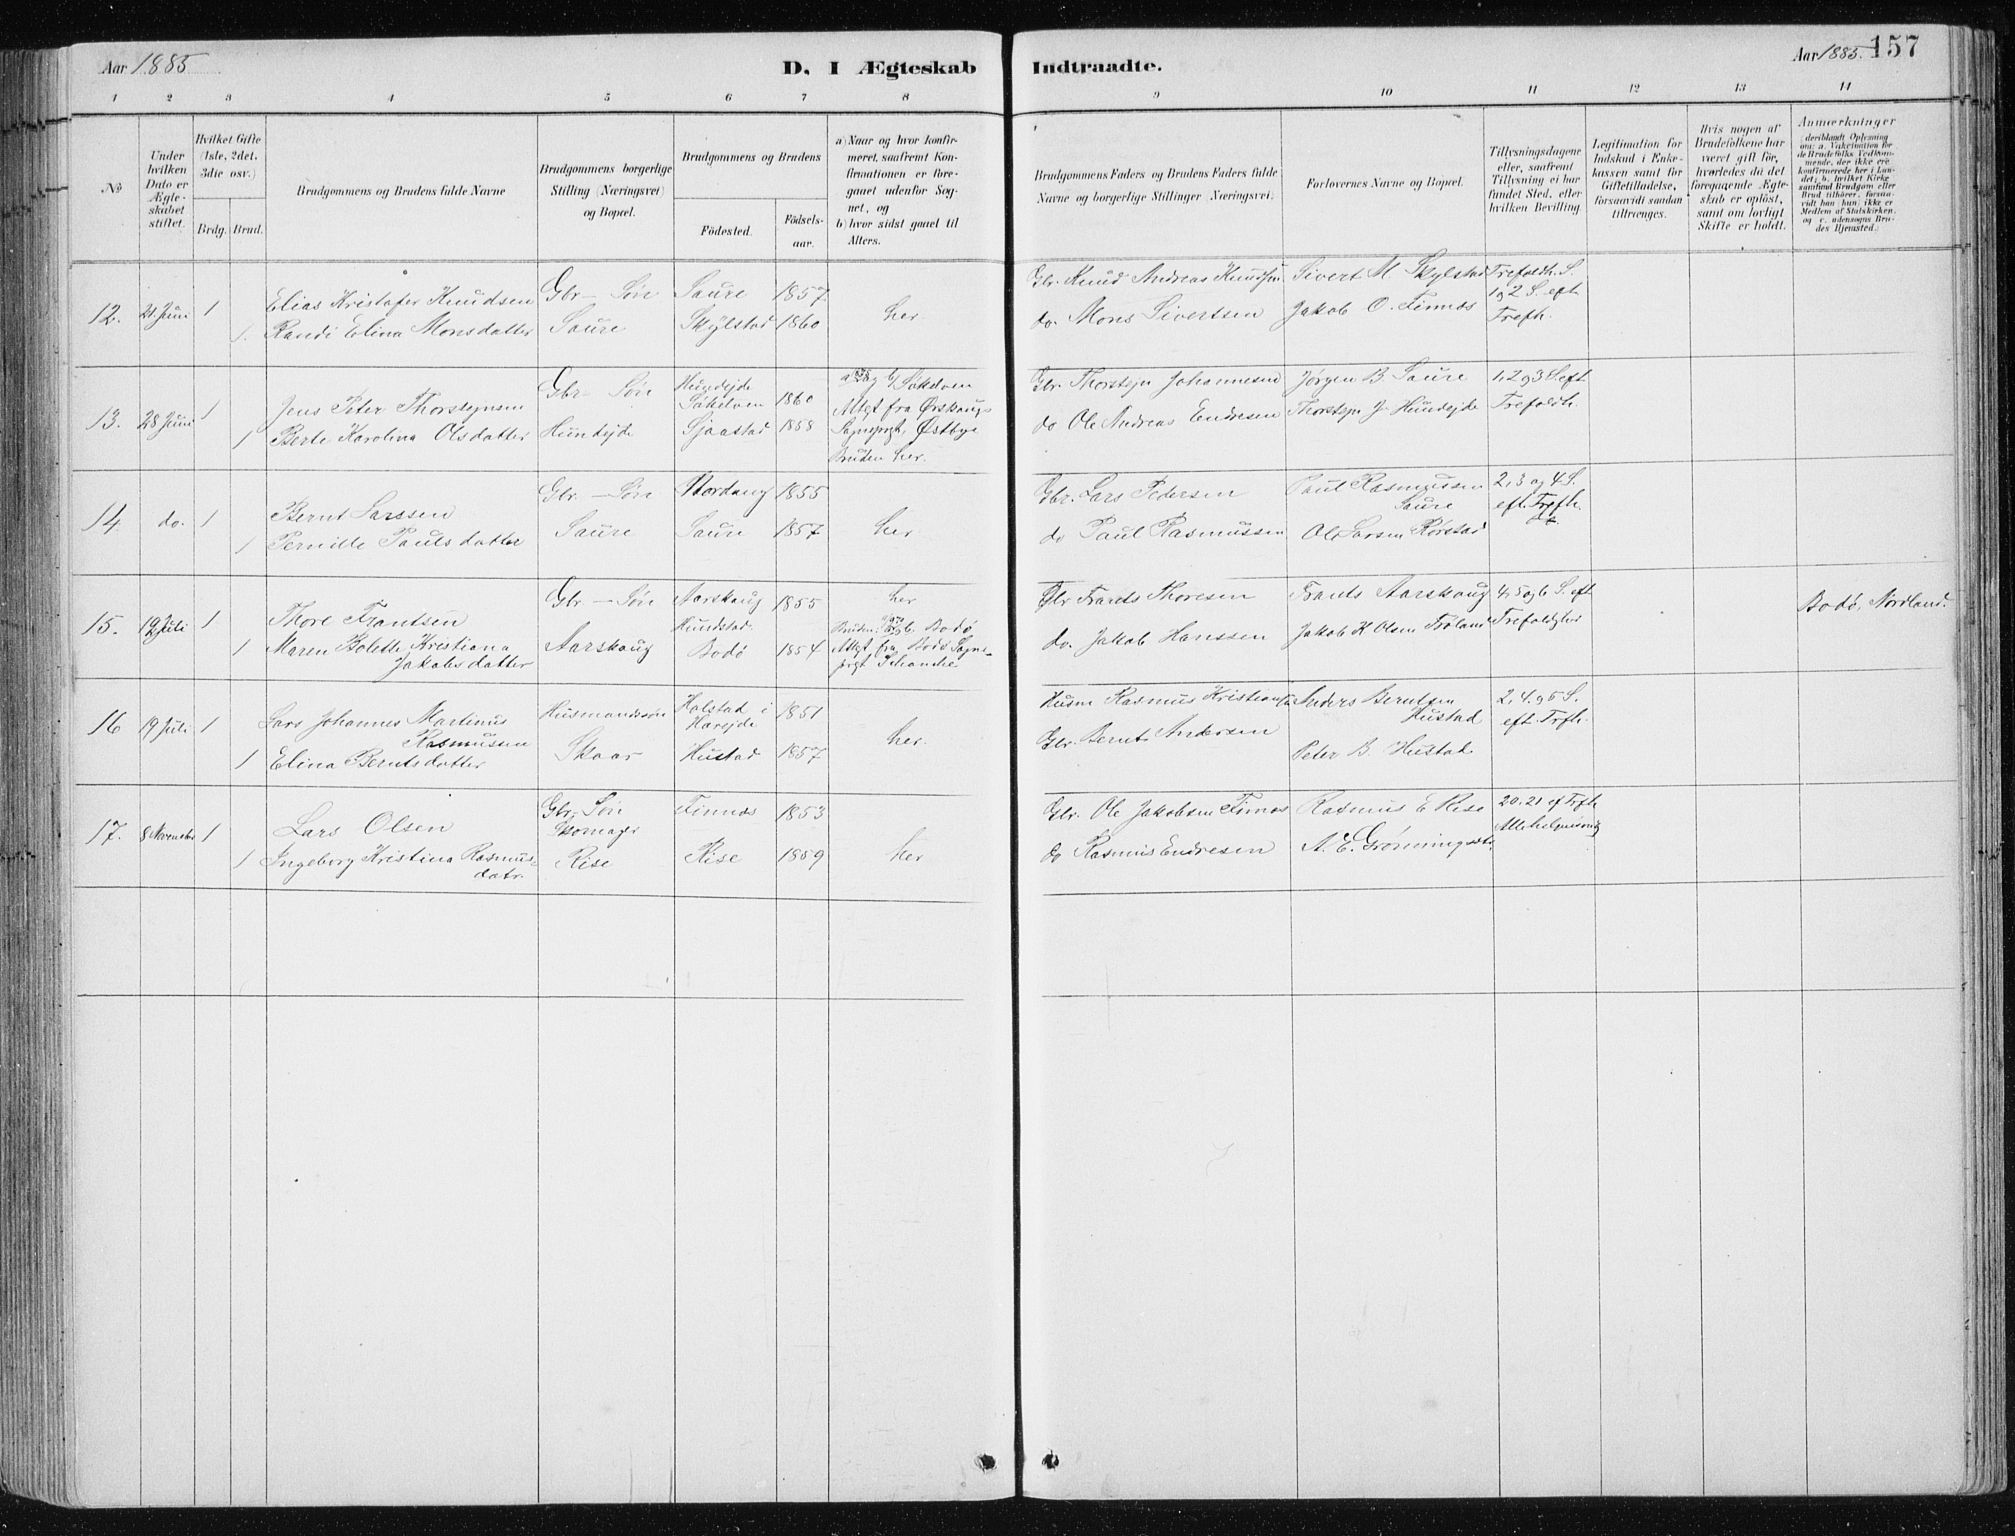 Aar 1885
D. I Ægteskab Indtraadte.
Aar 1885. 157
1 2 3 4 5 6 7 8 9 10 11 12 13 14
№
Under hvilken Dato er Ægteskabet stiftet.
Hvilket Gifte (1ste, 2det, 3die osv.)
Brdg. Brud.
Brudgommens og Brudens fulde Navne
Brudgommens borgerlige Stilling (Næringsvei) og Bopæl.
Brudgommens og Brudens
Födested.
Födsels-aar.
a) Naar og hvor konfir-
meret, saafremt Kon-
firmationen er fore-
gaaet udenfor Sog-
net, og
b) hvor sidst gaaet til
Alters.
Brudgommens Faders og Brudens Faders fulde
Navne og borgerlige Stillinger (Næringsvei).
Forlovernes Navne og Bopæl.
Tillysningsdagene
eller, saafremt
Tillysning ei har
fundet Sted, efter
hvilken Bevilling
Legitimation for
Indskud i Enke-
kassen samt for
Giftetilladelse,
forsaavidt saadan
tiltrænges.
Hvis nogen af
Brudefolkene har
været gift før,
hvorledes da det
foregaaende Ægte-
skab er opløst,
samt om lovligt
Skifte er holdt.
Anmærkninger
(deriblandt Oplysning
om: a. Vaksination for
de Brudefolks Vedkom-
mende, der ikke ere
konfirmerede her i Lan-
det; b. hvilket Kirke-
samfund Brudgom eller
Brud tilhører, forsaa-
vidt han (hun) ikke er
Medlem af Statskirken,
og c. udensogns Bru-
des Hjemsted.)
12. 21 Juni 1 Elias Kristofer Knudsen Gbr-Søn Saure 1857 her. Gbr. Knud Andreas Knudsen Sivert M Skylstad Trefoldh. S.
1. Randi Elina Monsdatter Saure Skylstad 1860 do. Mons Sivertsen Jakob O. Finnæs 1 og 2 S. eft
Trefh.
13. 28 Juni 1 Jens Peter Thorstejnsen Gbr-Søn Hundejde Søkelven 1860 Gbr. Thorstejn Johannesen Jørgen B Saure 1, 2 og 3 S. eft
Trefoldh.
1 Berte Karolina Olsdatter Hundejde Sjaastad 1858 do Ole Andreas Endresen Thorstejn J. Hundejde
Søkelven
Attgt fra Ørskougs
Sognepræst, Østbye
Bruden her.
14. do. 1 Bernt Larssen Gbr.-Søn Nordang 1855 her Gbr. Lars Pedersen Paul Rasmussen Saure 2, 3 og 4 S.
eft. Trefh.
1 Pernille Paulsdatter Saure Saure 1857 do Paul Rasmussen Ole Larsen Rørstad
15. 12 Juli 1 Thore Frantsen Gbr-Søn Aarskaug Hundstad. 1855 her Gbr Frants Thoresen Frants Aarskaug 4, 5 og 6 S. eft
Trefoldighed
1 Maren Bolette Kristiana
Jakobsdatter Aarskaug Bodø 1854 do. Jakob Hanssen Jakob K Olsen
Bruden: b. Bodø
Attgt fra Bodø Sogne-
prgt Schanche
Bodø, Nordland.
16 19 Juli 1 Lars Johannes Martinus
Rasmussen Husmandssøn Halstad i
Harejde 1851 her. Husm Rasmus Kristiansen Anders Berntsen
Hustad 2, 4. og 5 S.
eft. Trfh.
1 Elina Berntsdatter Skaar Hustad 1857 Gbr. Bernt Andersen Peter B. Hustad
17. 8 November 1 Lars Olsen Gbr.-Søn
Skomager Finnæs 1853 her Gbr. Ole Jakobsen Finnæs Rasmus E Rise 20. 21 ef Trfh
Allehelgensdag
1 Ingeborg Kristina Rasmus-
datr. Rise Rise 1859 do Rasmus Endresen A. E. Grønningsæter